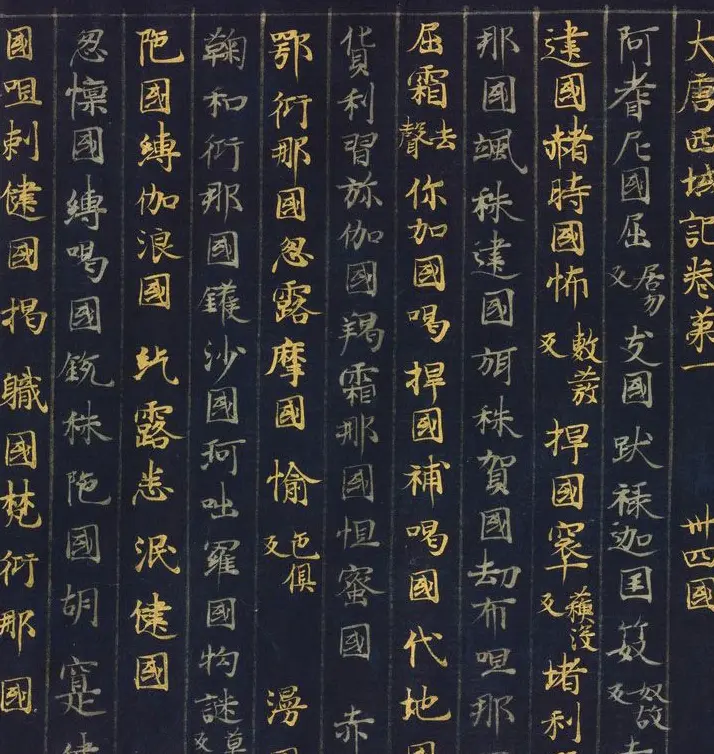 大唐西域記卷第一 卅四國
阿耆尼國屈居勿反支國跋祿迦国笯奴故反赤
建國赭時國怖敷發反捍國窣蘇沒反堵利
那國颯秣建國弭秣賀國劫布呾那
屈霜去聲你加國喝捍國補喝國代地國
貨利習弥伽國羯霜那國怛蜜國 赤
鄂衍那國忽露摩國愉色俱反 漫
鞠和衍那國鑊沙國珂咄羅國拘謎莫反
陁國縛伽浪國紇露悉泯健國
忽懍國縛喝國銳秣陁國胡寔健
國呾剌健國揭職國梵衍那國